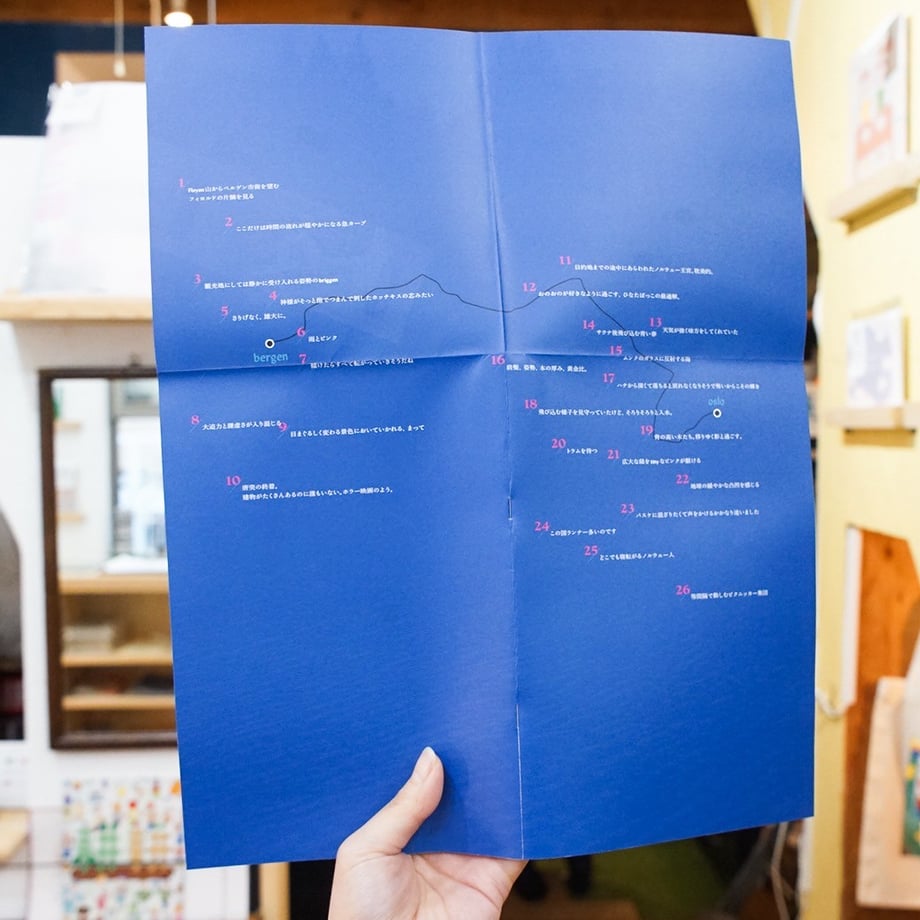 1 Fløyen山からベルゲン市街を望む
フィヨルドの片鱗を見る
2 ここだけは時間の流れが穏やかになる急カーブ
3 観光地にしては静かに受け入れる姿勢のbriggen
4 神様がそっと指でつまんで刺したホッチキスの忘みたい
5 さりげなく、雄大に。
6 雨とピンク
bergen
7 描けたらすべて転がっていきそうだね
8 大迫力と謙虚さが入り混じる
9 目まぐるしく変わる景色においていかれる、まって
10 唐突の終着。
建物がたくさんあるのに誰もいない。ホラー映画のよう。
11 目的地までの途中にあらわれたノルウェー王宮。
12 おのおのが好きなように過ごす、ひなたぼっこの最適解。
13 天気が強く味方をしてくれていた
14 サウナ後飛び込む青い夢
15 ムンクのガラスに反射する海
16 黄金比。
17
oslo
18 飛び込む様子を見守っていたけど、そろりそろりと入水。
19 背の高い木たち。移りゆく影と過ごす。
20 トラムを待つ
21 広大な緑をtinyなピンクが駆ける
22 地球の緩やかな凸凹を感じる
23 バスケに混ざりたくて声をかけるかかなり迷いました
24 この国ランナー多いのです
25 どこでも寝転がるノルウェー人
26 等間隔で楽しむピクニッカー集団